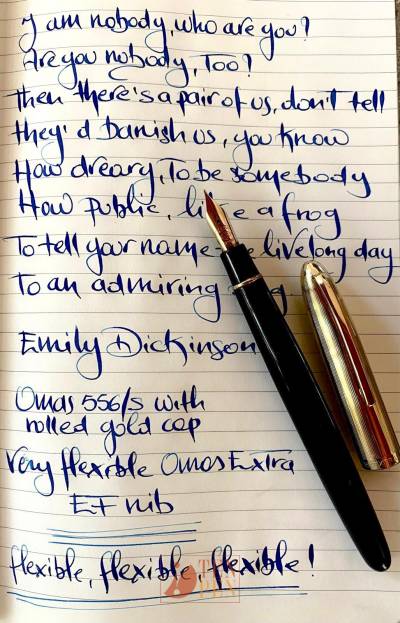 I am nobody, who are you?
Are you nobody, Too?
Then there's a pair of us, don't tell
they'd banish us, you know
How dreary, To be somebody
How public, li e a frog
To tell your name e livelong day
To an admiring
Emily Dickinson
Omas 556/s with
rolled gold cap
Very flexible Omas Extra
EF nib
flexible, flexible, flexible!
THE
PEN